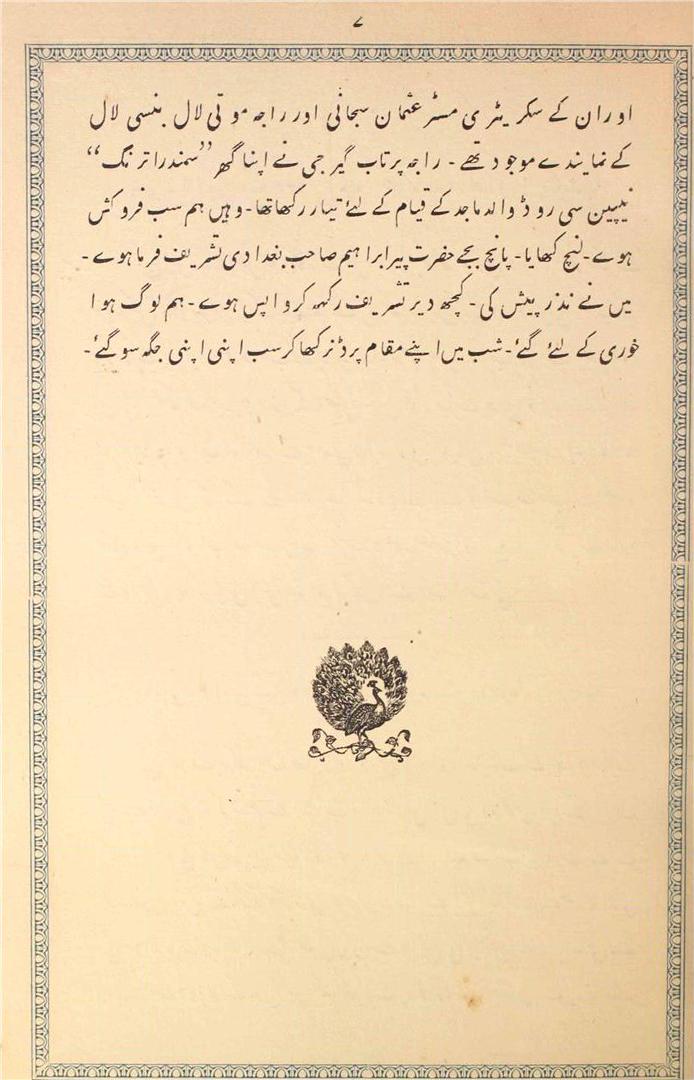 ۷
اور ان کے سکریٹری مسٹر عثمان سبحانی اور راجہ موتی لال بنسی لال
کے نمایندے موجود تھے۔ راجہ پرتاب گیر جی نے اپنا گھر ’’سمندرا ترنگ‘‘
نیپین سی روڈ والد ماجد کے قیام کے لئے تیار رکھا تھا۔ وہیں ہم سب فروکش
ہوے۔ لنچ کھایا۔ پانچ بجے حضرت پیر ابراہیم صاحب بغدادی تشریف فرما ہوے۔
میں نے نذر پیش کی۔ کچھ دیر تشریف رکھہ کر واپس ہوے۔ ہم لوگ ہوا
خوری کے لئے گئے۔ شب میں اپنے مقام پر ڈنر کھا کر سب اپنی اپنی جگہ سو گئے۔